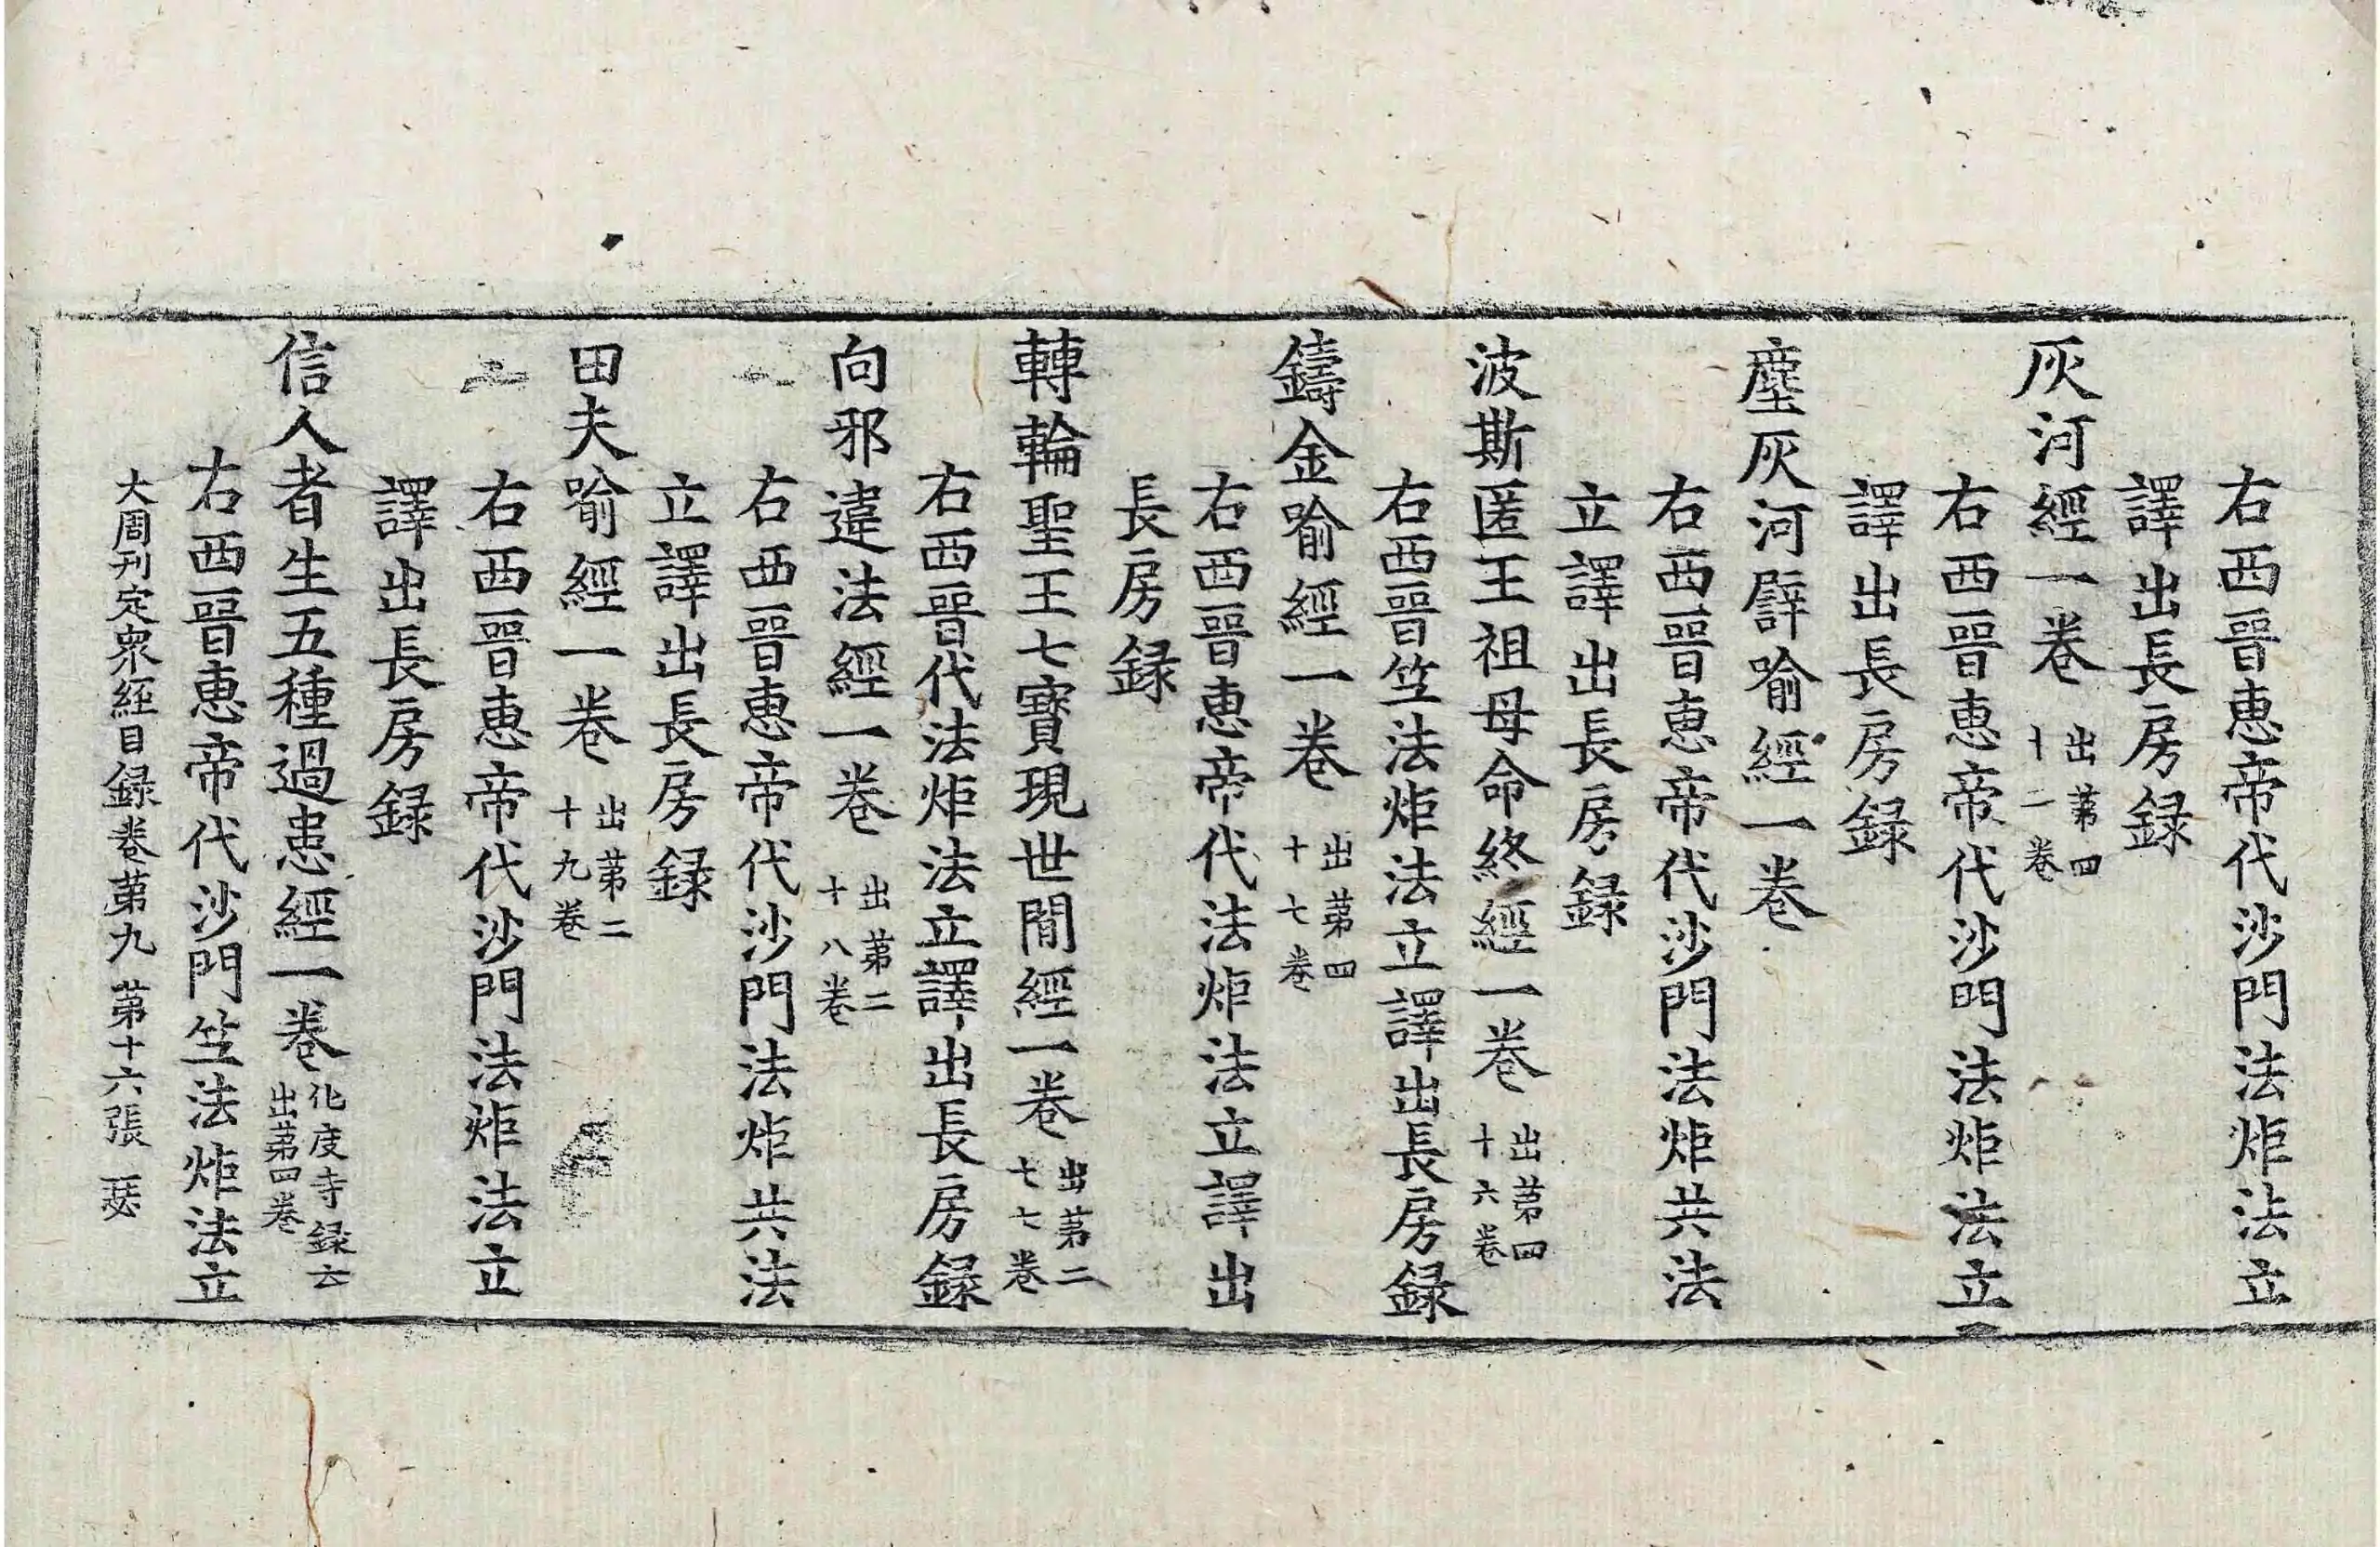 右西晉惠帝代沙門法炬法立
譯出長房録
灰河經一卷 出第四十二卷
右西晉惠帝代沙門法炬法立
譯出長房録
塵灰河譬喻經一卷
右西晉惠帝代沙門法炬共法
立譯出長房録
波斯匿王祖母命終經一卷 出第四十六卷
右西晉竺法炬法立譯出長房録
鑄金喻經一卷 出第四十七卷
右西晉惠帝代法炬法立譯出
長房録
轉輪聖王七寶現世閒經一卷 出第二七七卷
右西晉代法炬法立譯出長房録
向邪違法經一卷 出第二十八卷
右西晉惠帝代沙門法炬共法
立譯出長房録
田夫喻經一卷 出第二十九卷
右西晉惠帝代沙門法炬法立
譯出長房録
信人者生五種過患經一卷 化度寺録云出第四卷
右西晉惠帝代沙門竺法炬法立
大周刊定衆經目録卷第九 第十六張 瑟